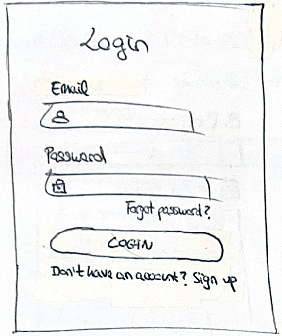 Login
Email
Password
Forgot password?
LOGIN
Don't have an account? Sign up